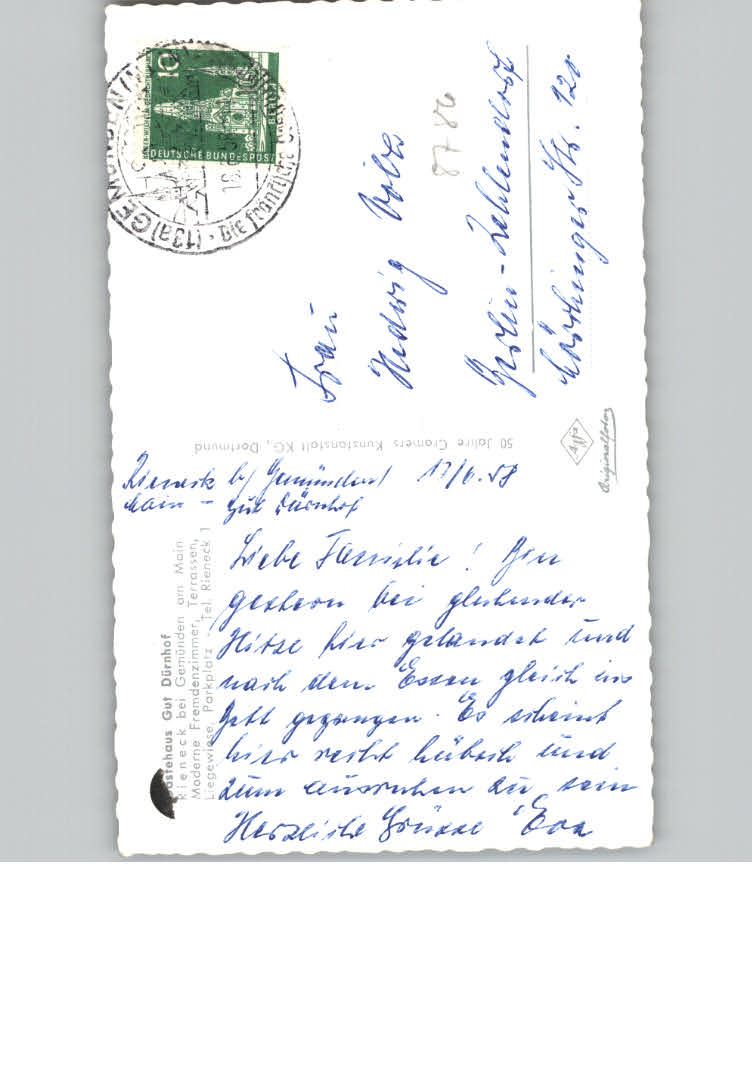 Rieneck b/ Gemünden/ 17/6.58
Main - Gut Dürnhof
Liebe Familie! Bin
gestern bei glühender
Hitze hier gelandet und
nach dem Essen gleich ins
Bett gegangen. Es scheint
hier recht hübsch und
zum ausruhen zu sein
Herzliche Grüsse Eva
Frau
Hedwig
Berlin-Zehlendorf
Str. 120
8786
Gästehaus Gut Dürnhof
Rieneck bei Gemünden am Main
Moderne Fremdenzimmer, Terrassen,
Liegewiese, Parkplatz - Tel. Rieneck 1
50 Jahre Cramers Kunstanstalt KG., Dortmund
Agfa
Originalfoto
10
DEUTSCHE BUNDESPOST
BERLIN
(13a) GEMÜNDEN